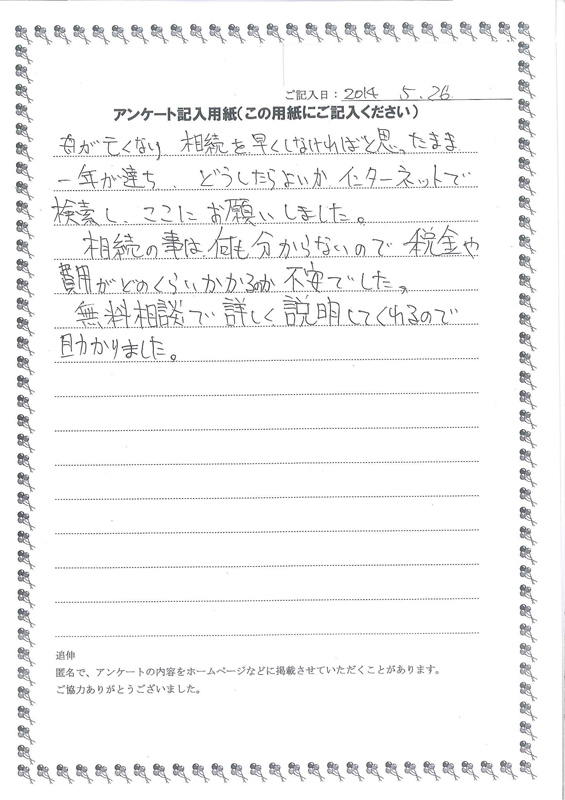 ご記入日：2014 5.26
アンケート記入用紙（この用紙にご記入ください）
母が亡くなり 相続を早くしなければと思ったまま
一年が達ち、どうしたらよいか インターネットで
検索し、ここに お願いしました。
相続の事は 何も分からないので 税金や
費用がどのくらいかかるのか 不安でした。
無料相談で 詳しく 説明してくれるので
助かりました。
追伸
匿名で、アンケートの内容をホームページなどに掲載させていただくことがあります。
ご協力ありがとうございました。